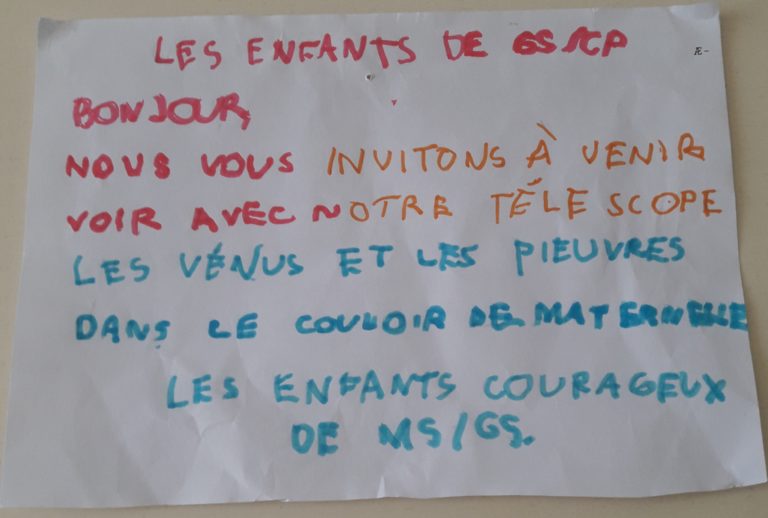 LES ENFANTS DE GS/CP
Æ-
BONJOUR,
NOUS VOUS INVITONS À VENIR
VOIR AVEC NOTRE TÉLESCOPE
LES VÉNUS ET LES PIEUVRES
DANS LE COULOIR DE MATERNELLE
LES ENFANTS COURAGEUX
DE MS/GS.